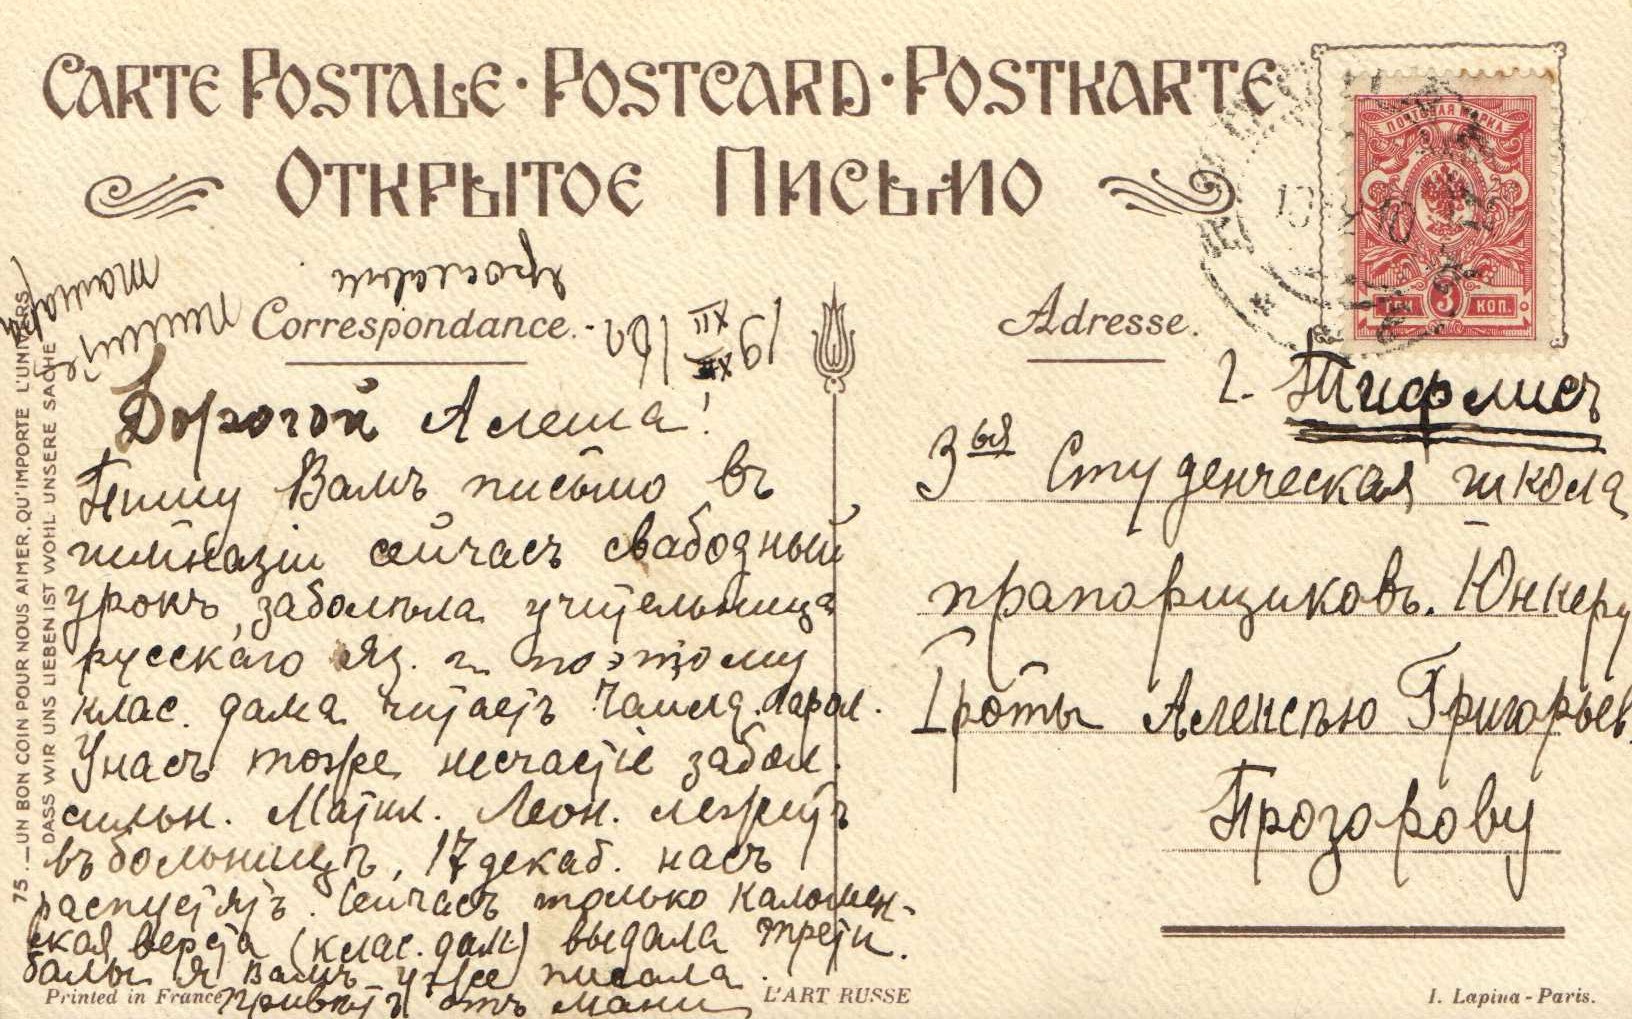 CARTE POSTALE · POSTCARD · POSTKARTE
ОТКРЫТОЕ ПИСЬМО
ПОЧТОВАЯ МАРКА
3
КОП.
Correspondance.
Adresse.
19 XII 16
пишите
Дорогой Алеша!
Пишу Вамъ письмо въ
гимназіи сейчасъ свабодный
урокъ, заболѣла учительница
русскаго яз. и поэтому
клас. дама читаетъ Чайльд. Гарол.
У насъ тоже несчастіе забол.
сильн. Матил. Леон. лежитъ
въ больницѣ, 17 декаб. насъ
распустятъ. Сейчасъ только Каломен-
ская верста (клас. дам.) выдала трети.
балы я Вамъ уже писала.
Привѣтъ отъ мамы
г. Тифлисъ
3ья Студенческая школа
прапорщиковъ. Юнкеру
I роты Алексѣю Григорьев.
Прозорову
75.—UN BON COIN POUR NOUS AIMER, QU'IMPORTE L'UNIVERS
DASS WIR UNS LIEBEN IST WOHL UNSERE SACHE
Printed in France
L'ART RUSSE
I. Lapina - Paris.